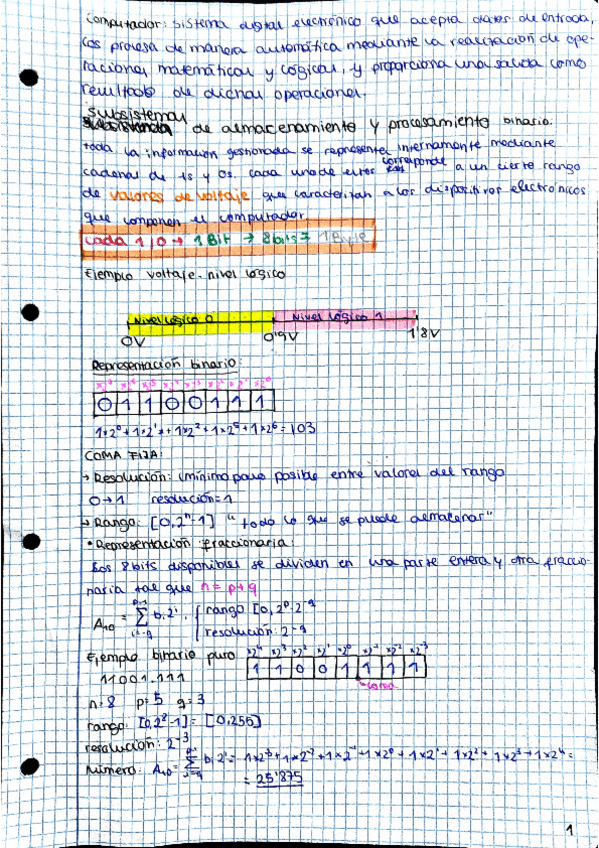 Computador: sistema digital electrónico que acepta datos de entrada,
los procesa de manera automática mediante la realización de ope-
raciones matemáticas y lógicas, y proporciona una salida como
resultado de dichas operaciones.
Subsistemas
de almacenamiento y procesamiento binario:
toda la información gestionada se representa internamente mediante
cadenas de 1s y 0s. Cada uno de estos corresponde a un cierto rango
de valores de voltaje que caracterizan a los dispositivos electrónicos
que componen el computador.
Cada 1/0 → 1 Bit → 8bits = 1Byte
Ejemplo voltaje-nivel lógico
Nivel lógico 0 Nivel lógico 1
0V 0'9V 1'8V
Representación binario:
x2⁷ x2⁶ x2⁵ x2⁴ x2³ x2² x2¹ x2⁰
0 1 1 0 0 1 1 1
1×2⁰+1×2¹+1×2²+1×2⁵+1×2⁶=103
COMA FIJA:
→ Resolución: (mínimo paso posible entre valores del rango
0→1 resolución=1
→ Rango: [0,2ⁿ-1] "todo lo que se puede almacenar"
• Representación fraccionaria:
Los 8bits disponibles se dividen en una parte entera y otra fraccio-
naria tal que n = p+q
A₁₀ = Σ bᵢ2ⁱ { rango [0, 2ᵖ-2⁻q
p-1 i=-q resolución: 2⁻q
Ejemplo binario puro x2⁴ x2³ x2² x2¹ x2⁰ x2⁻¹ x2⁻² x2⁻³
11001.111 1 1 0 0 1 1 1 1
coma
n=8 p=5 q=3
rango: [0,2⁸-1] = [0,255]
resolución: 2⁻³
Número: A₁₀= Σ bᵢ2ⁱ = 1×2⁻³+1×2⁻²+1×2⁻¹+1×2⁰+1×2¹+1×2²+1×2³+1×2⁴=
= 25'875
1